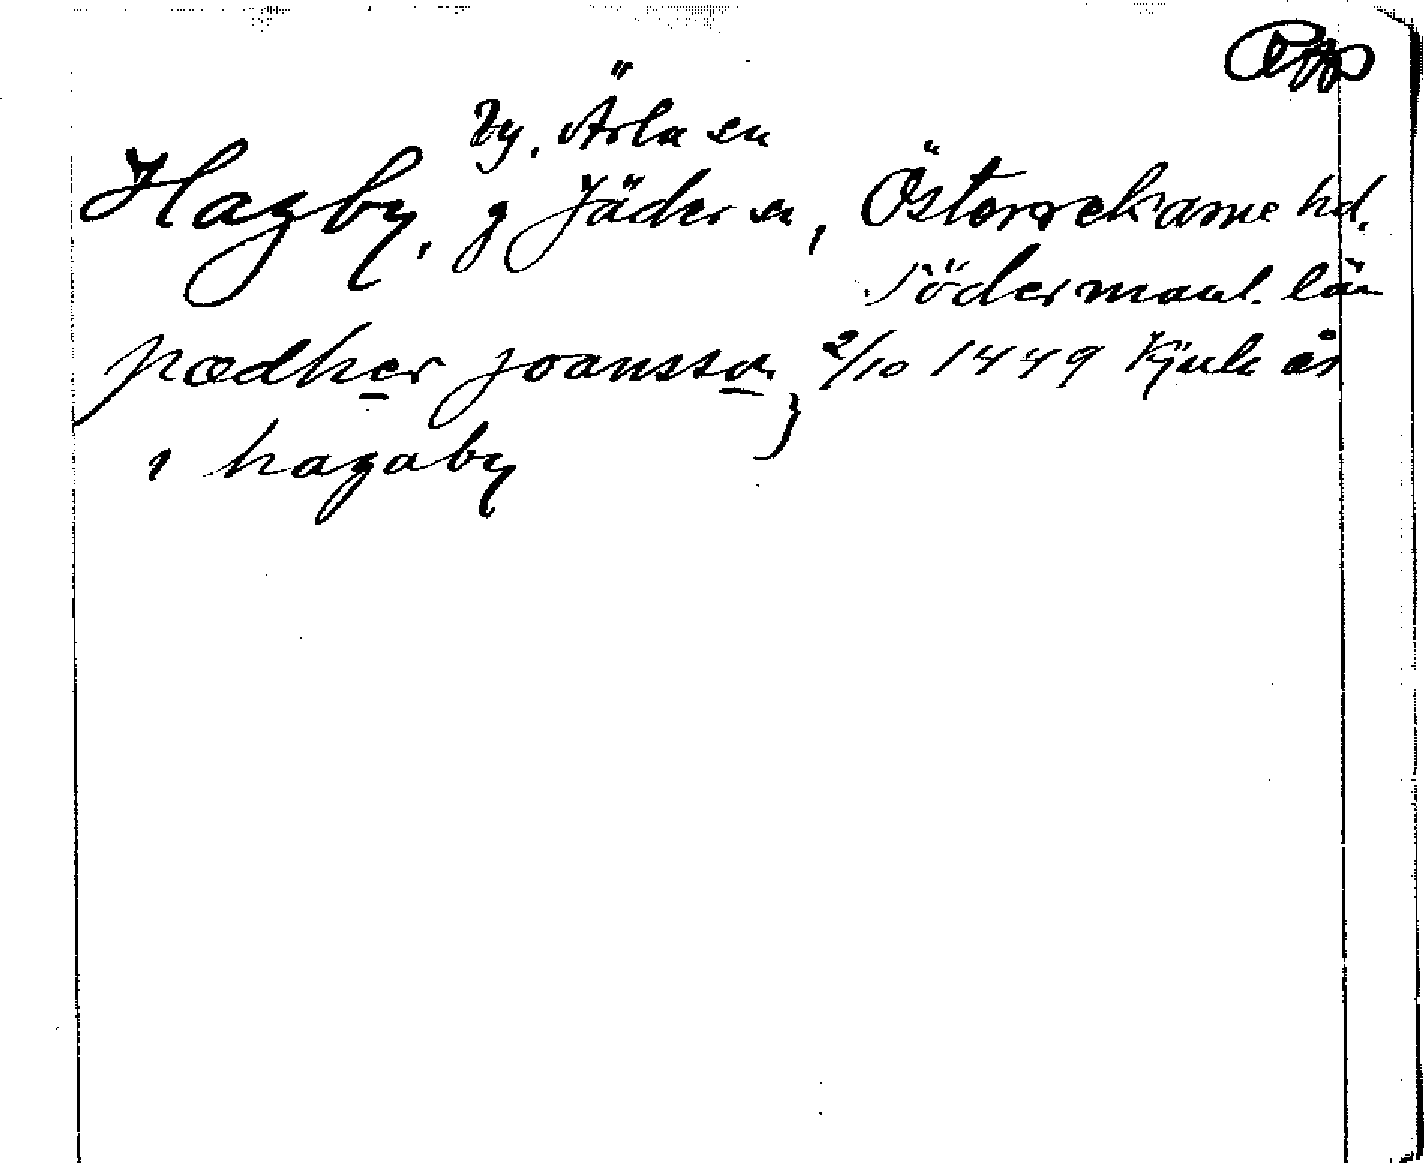 by. Ärla sn
Hagby, g Jäder sn, Österrekarne hd.
Södermanl. län
pædher joansson } 2/10 1449 Kjula ås
i hagaby